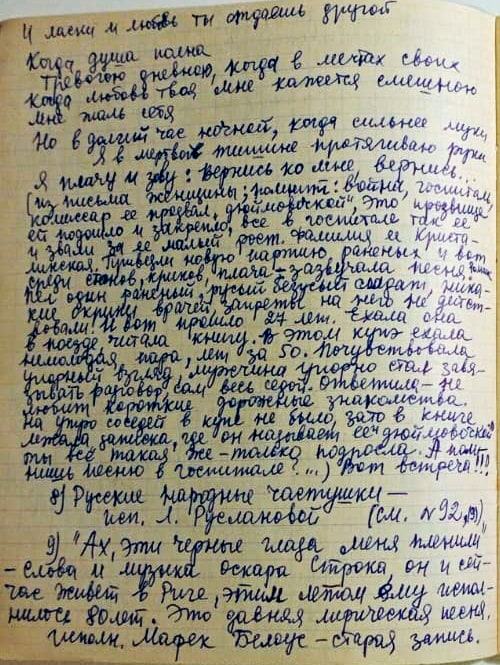 И ласки и любовь ты отдаешь другой
Когда душа полна
Тревогою дневною, когда в мечтах своих
Когда любовь твоя мне кажется смешною
Мне жаль себя
Но в долгий час ночной, когда сильнее муки
Я в мертвой тишине протягиваю руки
Я плачу и зву: вернись ко мне, вернись...
(из письма женщины: помнит: в отн. госпитал
комиссар ее прозвал "дюймовочкой". Это прозвище
ей подошло и закрепло, все в госпитале так ее
и звали за ее малый рост. Фамилия ее Криста-
линская. Привезли новую партию раненых и вот
среди стонов, криков, плача - зазвучала песня.
пел один раненый, русый безусый солдат, ника-
кие окрики врачей, запреты на него не дейст-
вовали. И вот прошло 27 лет. Ехала она
в поезде, читала книгу. В этом купэ ехала
немолодая пара, лет за 50. Почувствовала
упорный взгляд, мужчина упорно стал завя-
зывать разговор, сам весь седой. Ответила - не
любит короткие дорожные знакомства.
На утро соседей в купе не было, зато в книге
лежала записка, где он называет ее "дюймовочкой
ты всё такая же - только подросла. А пом-
нишь песню в госпитале?...) Вот встреча!!!
8) Русские народные частушки -
исп. Л. Руслановой (см. №92,
9) "Ах, эти черные глаза меня пленили"
- слова и музыка Оскара Строка он и сей-
час живет в Риге, этим летом ему испол-
нилось 80 лет. Это давняя лирическая песня.
Исполн. Мафек Белоус - старая запись.